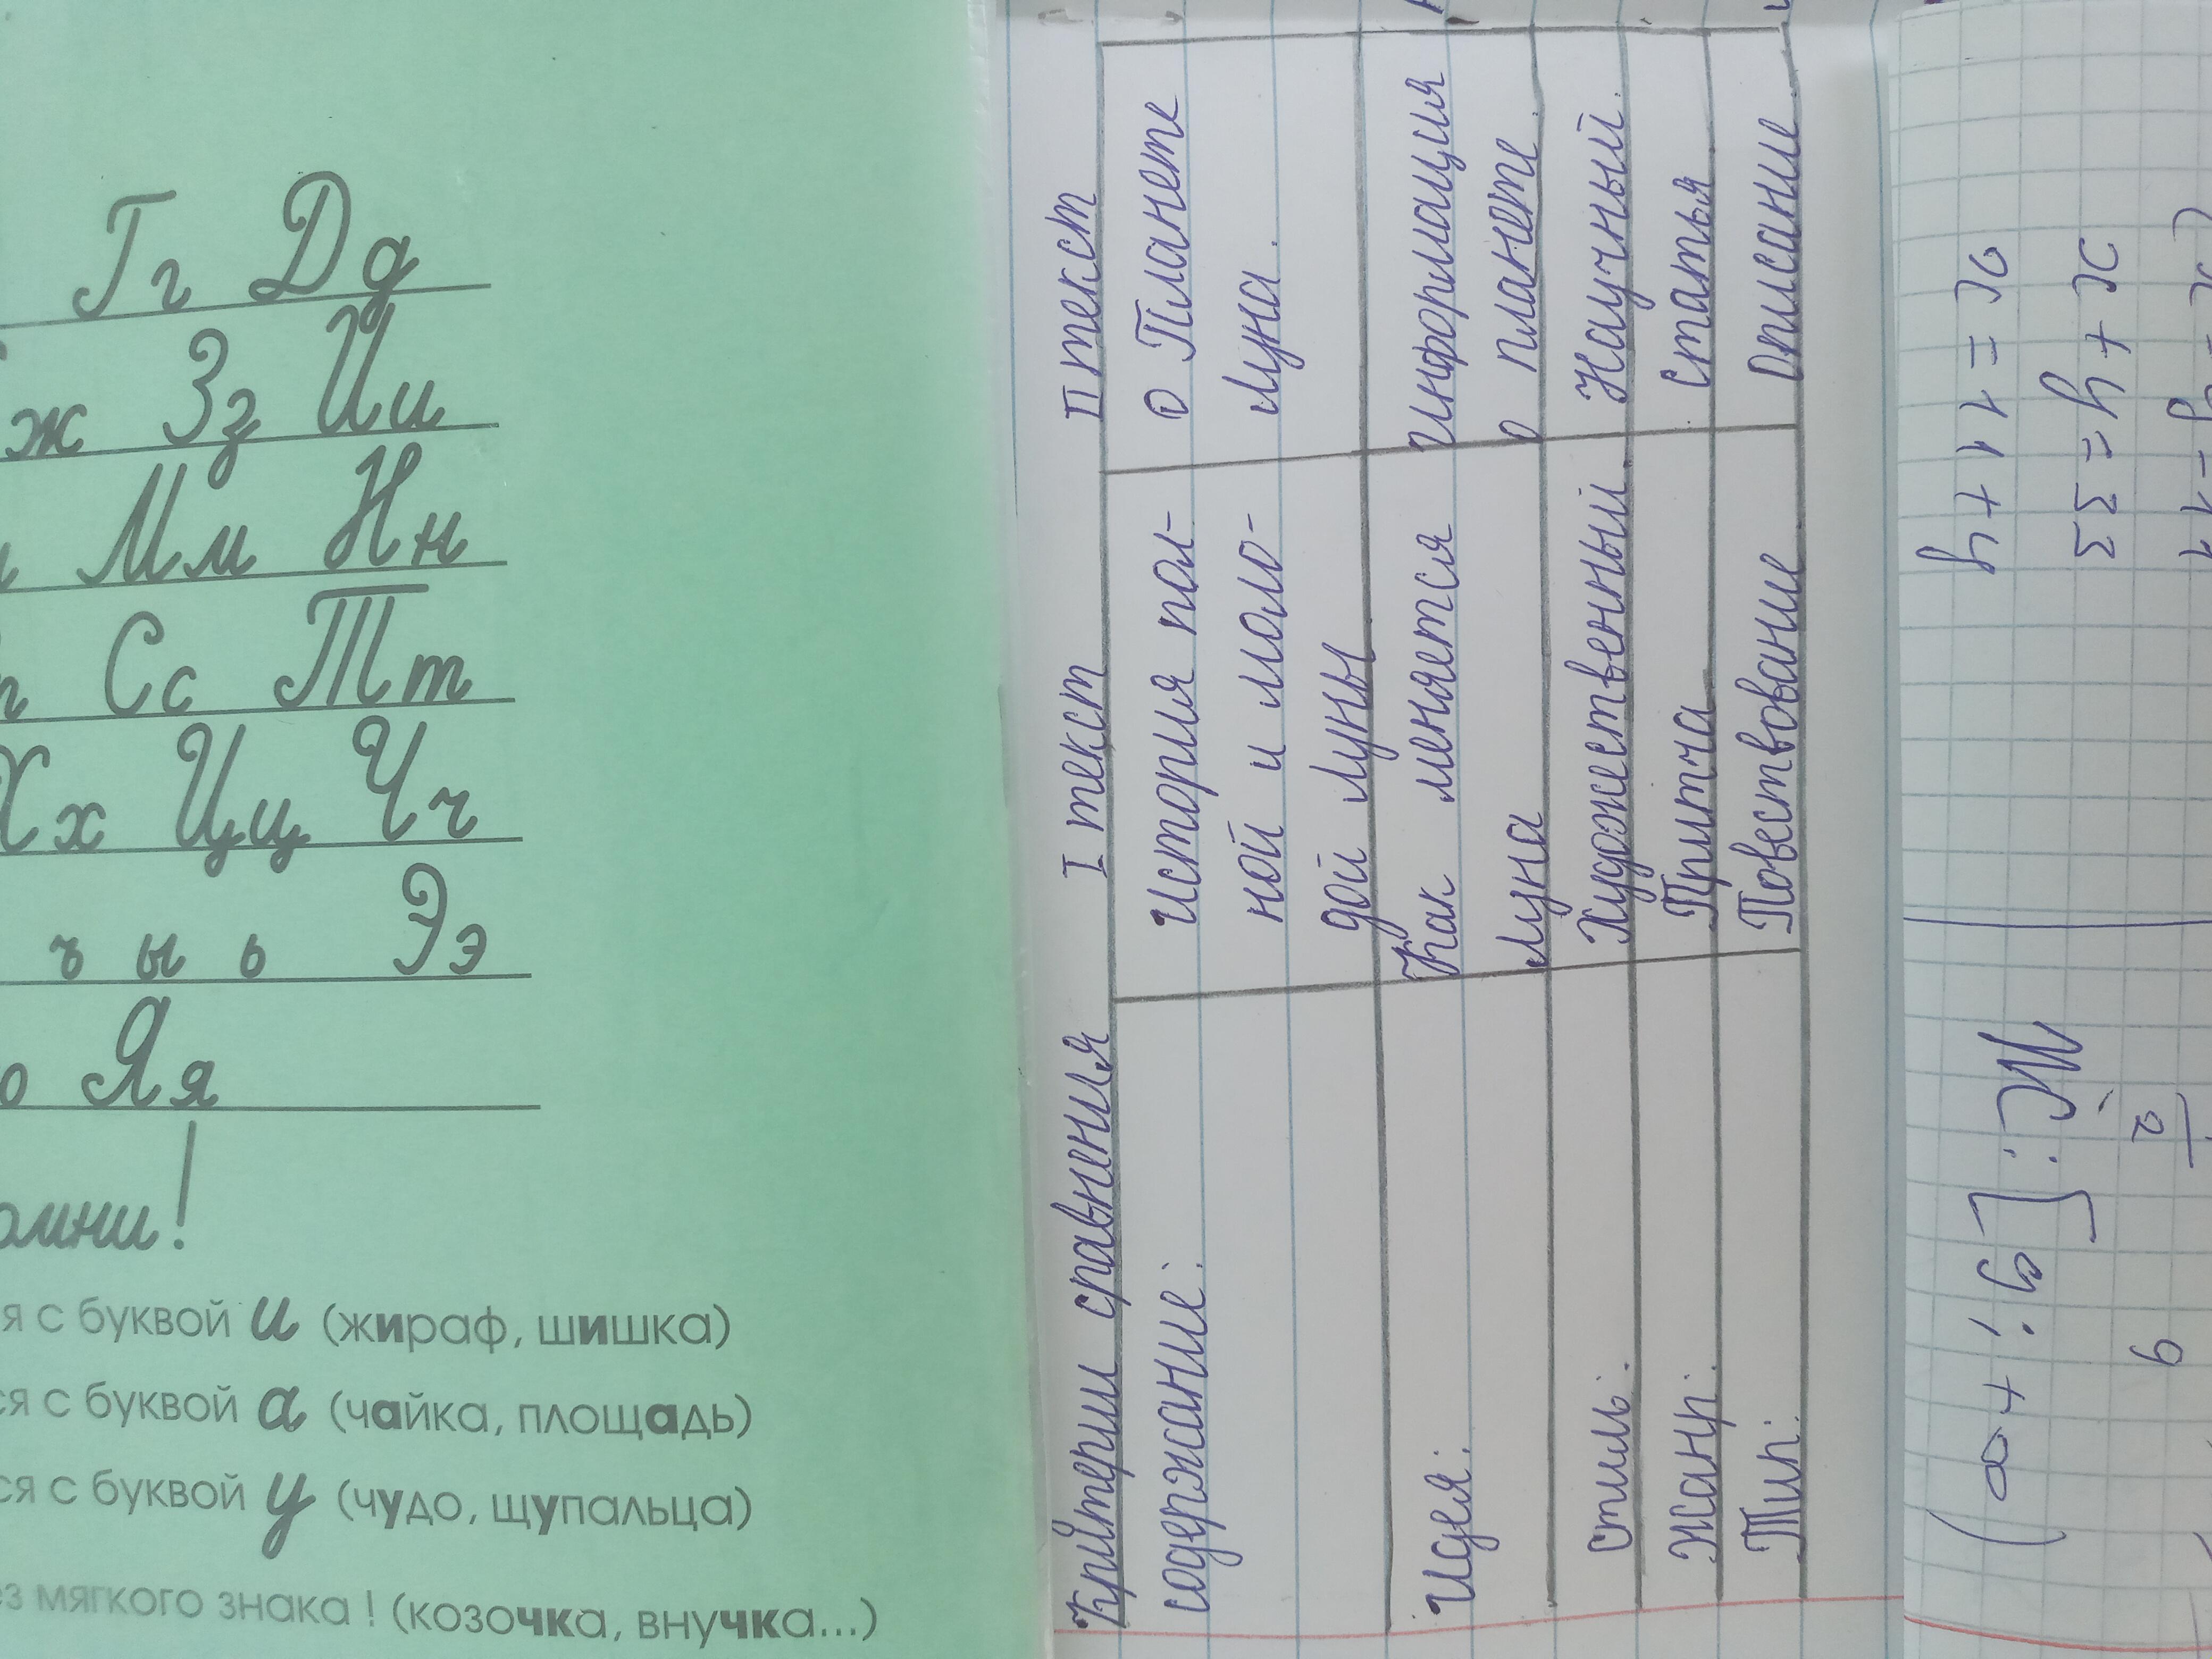 Гг Дд
ж Зз Ии
Мм Нн
Сс Тт
Хх Цц Чч
ъ ы ь Ээ
Яя
омни!
я с буквой и (жираф, шишка)
ся с буквой а (чайка, площадь)
ся с буквой у (чудо, щупальца)
ез мягкого знака ! (козочка, внучка...)
Критерии сравнения I текст II текст
содержание: История пол- О Планете
ной и моло- Луна.
дой Луны
Идея: Как меняется Информация
Луна о планете.
стиль: Художественный. Научный.
Жанр: Притча Статья
Тип: Повествование Описание